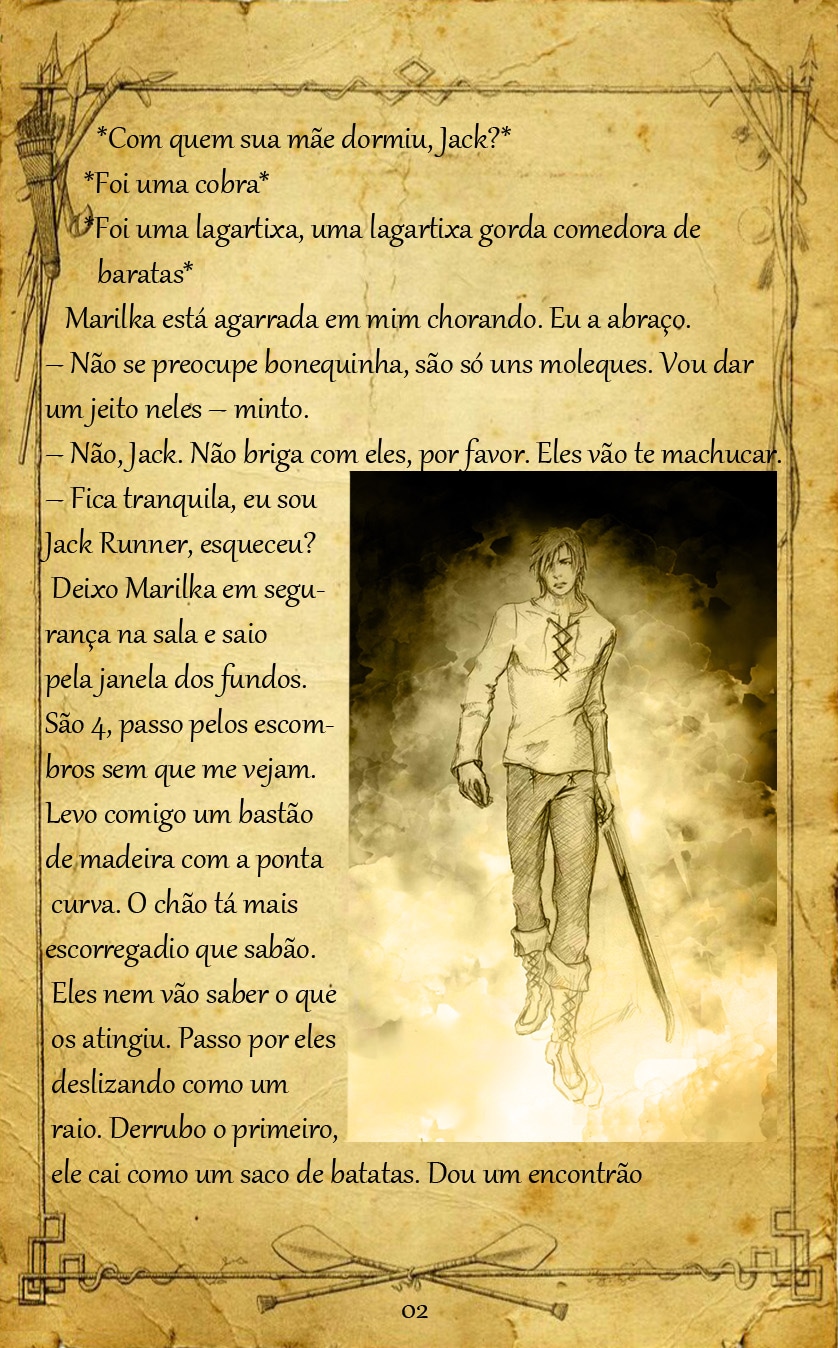 *Com quem sua mãe dormiu, Jack?*
*Foi uma cobra*
*Foi uma lagartixa, uma lagartixa gorda comedora de
baratas*
Marilka está agarrada em mim chorando. Eu a abraço.
– Não se preocupe bonequinha, são só uns moleques. Vou dar
um jeito neles – minto.
– Não, Jack. Não briga com eles, por favor. Eles vão te machucar.
– Fica tranquila, eu sou
Jack Runner, esqueceu?
Deixo Marilka em segu-
rança na sala e saio
pela janela dos fundos.
São 4, passo pelos escom-
bros sem que me vejam.
Levo comigo um bastão
de madeira com a ponta
curva. O chão tá mais
escorregadio que sabão.
Eles nem vão saber o que
os atingiu. Passo por eles
deslizando como um
raio. Derrubo o primeiro,
ele cai como um saco de batatas. Dou um encontrão
02